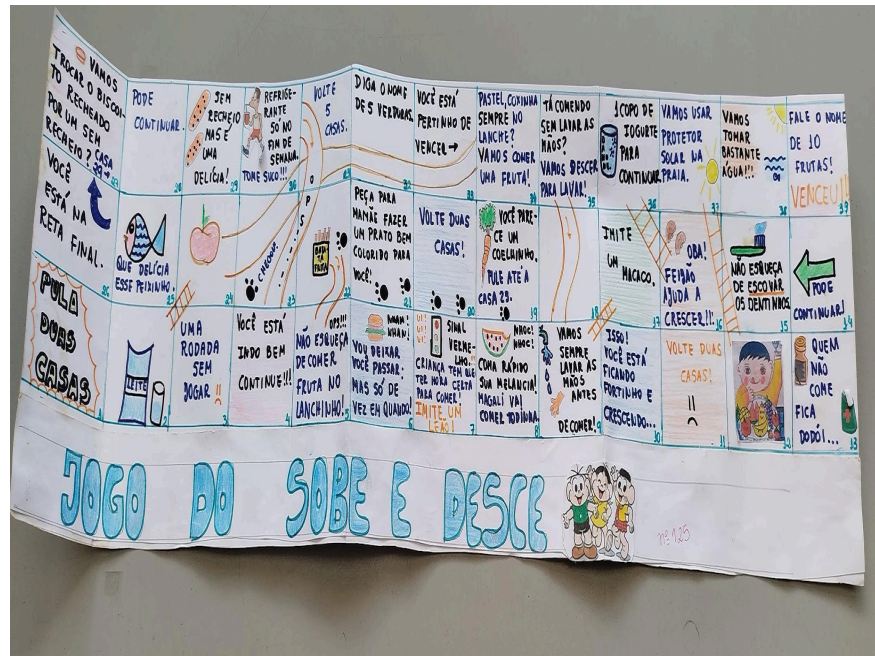 VAMOS
TROCAR O BISCOI-
TO RECHEADO
POR UM SEM
RECHEIO? CASA
29→
27
PODE
CONTINUAR.
28
SEM
RECHEIO
MAS É
UMA
DELÍCIA!
29
REFRIGE-
RANTE
SÓ NO
FIM DE
SEMANA.
TOME SUCO!!!
30
VOLTE
5
CASAS.
31
DIGA O NOME
DE 5 VERDURAS.
32
VOCÊ ESTÁ
PERTINHO DE
VENCER→
33
PASTEL, COXINHA
SEMPRE NO
LANCHE?
VAMOS COMER
UMA FRUTA!
34
TÁ COMENDO
SEM LAVAR AS
MÃOS?
VAMOS DESCER
PARA LAVAR!
35
1 COPO DE
IOGURTE
PARA
CONTINUAR.
36
VAMOS USAR
PROTETOR
SOLAR NA
PRAIA.
37
VAMOS
TOMAR
BASTANTE
ÁGUA!!!
38
FALE O NOME
DE 10
FRUTAS!
VENCEU!!!
39
VOCÊ
ESTÁ NA
RETA FINAL.
26
QUE DELÍCIA
ESSE PEIXINHO.
25
24
23
OPS
22
PEÇA PARA
MAMÃE FAZER
UM PRATO BEM
COLORIDO PARA
VOCÊ.
21
VOLTE DUAS
CASAS!
20
VOCÊ PARE-
CE UM
COELHINHO.
PULE ATÉ A
CASA 25.
19
18
IMITE
UM MACACO.
17
OBA!
FEIJÃO
AJUDA A
CRESCER!!!
16
NÃO ESQUEÇA
DE ESCOVAR
OS DENTINHOS
15
PODE
CONTINUAR!
14
PULA
DUAS
CASAS
1
LEITE
2
UMA
RODADA
SEM
JOGAR
3
VOCÊ ESTÁ
INDO BEM
CONTINUE!!!
4
OPS!!!
NÃO ESQUEÇA
DE COMER
FRUTA NO
LANCHINHO!
5
NHAM!
NHAM!
VOU DEIXAR
VOCÊ PASSAR.
MAS SÓ DE
VEZ EM QUANDO.
6
UI!
UI!
SINAL
VERME-
LHO
CRIANÇA TEM QUE
TER HORA CERTA
PARA COMER!
IMITE UM
LEÃO!
7
NHOC!
NHOC!
COMA RÁPIDO
SUA MELANCIA!
MAGALI VAI
COMER TODINHA.
8
VAMOS
SEMPRE
LAVAR AS
MÃOS
ANTES
DE COMER!
9
ISSO!
VOCÊ ESTÁ
FICANDO
FORTINHO E
CRESCENDO...
10
VOLTE DUAS
CASAS!
11
12
QUEM
NÃO
COME
FICA
DODÓI...
13
JOGO DO SOBE E DESCE
nº 125